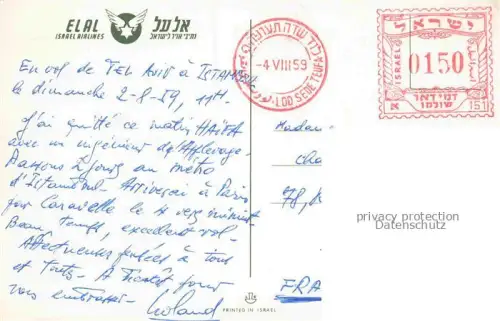 EL AL
ISRAEL AIRLINES
אל על
נתיבי אויר לישראל
En vol de TEL Aviv à ISTAMBUL
le dimanche 2-8-59, 11H.
J'ai quitté ce matin HAÏFA
avec un ingénieur de
Passons 2 jours au
d'Istambul. Arriverai à Paris
par Caravelle le 4 vers minuit
Beau temps, excellent vol.
Affectueuses pensées à tous
et toutes. A bientôt pour
vous embrasser.
Roland
-4 VIII 59
LOD SEDE TEUFA
ישראל
ISRAEL
0150
דמי דואר
שולמו
א
151
Madam
cha
78, R
FRA
PRINTED IN ISRAEL
privacy protection
Datenschutz